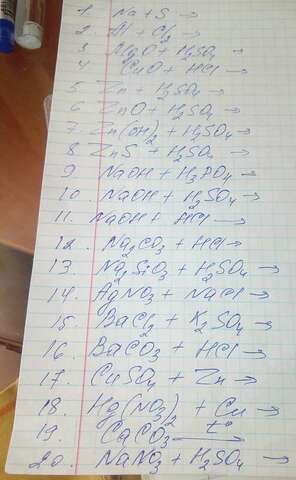 1 Na + S →
2. Al + Cl₂ →
3 MgO + H₂SO₄ →
4 CuO + HCl →
5 Zn + H₂SO₄ →
6 ZnO + H₂SO₄ →
7. Zn(OH)₂ + H₂SO₄ →
8 ZnS + H₂SO₄ →
9 NaOH + H₃PO₄ →
10. NaOH + H₂SO₄ →
11. NaOH + HCl →
12. Na₂CO₃ + HCl →
13. Na₂SiO₃ + H₂SO₄ →
14. AgNO₃ + NaCl →
15. BaCl₂ + K₂SO₄ →
16. BaCO₃ + HCl →
17. CuSO₄ + Zn →
18. Hg(NO₃)₂ + Cu →
19. CaCO₃ t° →
20. NaNO₃ + H₂SO₄ →